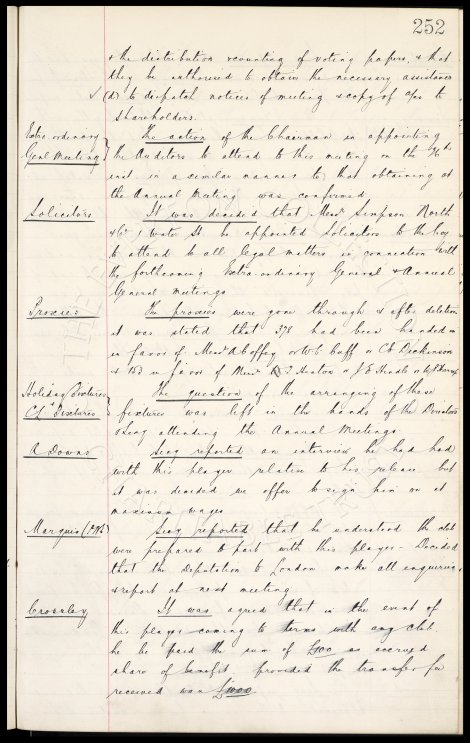 252
& the distribution & counting of voting papers, & that
they be authorised to obtain the necessary assistance
(d) to dispatch notices of meeting & copy of a/cs to
shareholders.
Extra-ordinary The action of the Chairman in appointing
Genl Meeting the Auditors to attend to this meeting on the
inst. in a similar manner to that obtaining at
the Annual Meeting was confirmed
Solicitors It was decided that Messrs Simpson North
& Co 1 Water St be appointed Solicitors to the Coy
to attend to all legal matters in connection with
the forthcoming Extra-ordinary General & Annual
General Meetings
Proxies The proxies were gone through & after deletion
it was stated that 378 had been handed in
in favor of Messrs A Coffey or W C Cuff or C S Dickinson
& 153 in favor of Messrs Heaton or J E
Holiday Fixtures The question of the arranging of these
CL Fixtures fixtures was left in the hands of the Directors
& Secy attending the Annual Meetings
R Downs Secy reported an interview he had had
with this player relative to his release but
it was decided we offer to sign him on at
maximum wages
Marquis Secy reported that he understood the club
were prepared to part with this player - Decided
that the Deputation to London make all enquiries
& report at next meeting
Crossley It was agreed that in the event of
this player coming to terms with any club
he be paid the sum of as accrued
share of benefit provided the transfer fee
received was